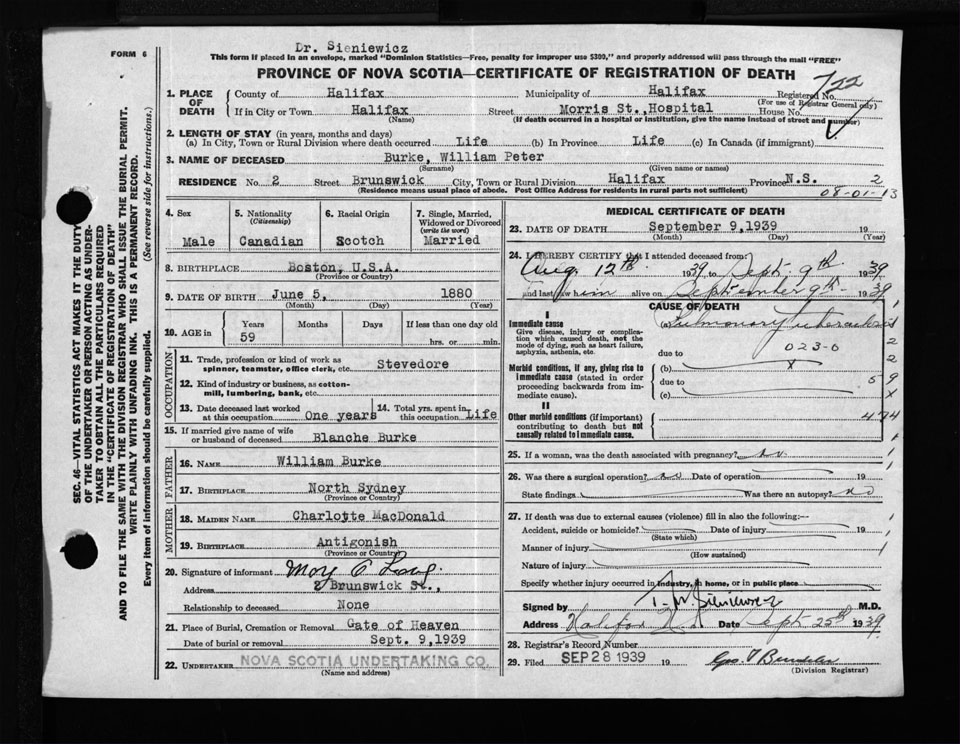 FORM 6
Dr. Sieniewicz
This form if placed in an envelope, marked "Dominion Statistics—Free, penalty for improper use $300," and properly addressed will pass through the mail "FREE"
PROVINCE OF NOVA SCOTIA—CERTIFICATE OF REGISTRATION OF DEATH
722
1. PLACE OF DEATH
County of Halifax Municipality of Halifax Registered No.
(For use of Registrar General only)
If in City or Town Halifax Street Morris St., Hospital House No.
(Name) (If death occurred in a hospital or institution, give the name instead of street and number)
2. LENGTH OF STAY (in years, months and days)
(a) In City, Town or Rural Division where death occurred Life (b) In Province Life (c) In Canada (if immigrant)
3. NAME OF DECEASED Burke, William Peter
(Surname) (Given name or names)
RESIDENCE No. 2 Street Brunswick City, Town or Rural Division Halifax Province N.S. 2
(Residence means usual place of abode. Post Office Address for residents in rural parts not sufficient)
08-01-13
4. Sex Male
5. Nationality (Citizenship) Canadian
6. Racial Origin Scotch
7. Single, Married, Widowed or Divorced (write the word) Married
8. BIRTHPLACE Boston, U.S.A.
(Province or Country)
9. DATE OF BIRTH June 5, 1880
(Month) (Day) (Year)
10. AGE in Years Months Days If less than one day old
59 hrs. or min.
OCCUPATION
11. Trade, profession or kind of work as spinner, teamster, office clerk, etc. Stevedore
12. Kind of industry or business, as cotton-mill, lumbering, bank, etc.
13. Date deceased last worked at this occupation One years
14. Total yrs. spent in this occupation Life
15. If married give name of wife or husband of deceased Blanche Burke
FATHER
16. NAME William Burke
17. BIRTHPLACE North Sydney
(Province or Country)
MOTHER
18. MAIDEN NAME Charlotte MacDonald
19. BIRTHPLACE Antigonish
(Province or Country)
20. Signature of informant
Address 2 Brunswick St.,
Relationship to deceased None
21. Place of Burial, Cremation or Removal Gate of Heaven
Date of burial or removal Sept. 9,1939
22. UNDERTAKER NOVA SCOTIA UNDERTAKING CO.
(Name and address)
MEDICAL CERTIFICATE OF DEATH
23. DATE OF DEATH September 9,1939 19
(Month) (Day) (Year)
24. I HEREBY CERTIFY that I attended deceased from:
Aug. 12th 1939 to Sept. 9th 1939
and last saw him alive on September 9th 1939
CAUSE OF DEATH
I
Immediate cause
Give disease, injury or complication which caused death, not the mode of dying, such as heart failure, asphyxia, asthenia, etc.
(a) Pulmonary tuberculosis
023-0
due to
Morbid conditions, if any, giving rise to immediate cause (stated in order proceeding backwards from immediate cause).
(b) X
due to 59
(c)
II
Other morbid conditions (if important) contributing to death but not causally related to immediate cause.
474
25. If a woman, was the death associated with pregnancy?
26. Was there a surgical operation? no Date of operation 19
State findings Was there an autopsy? no
27. If death was due to external causes (violence) fill in also the following:—
Accident, suicide or homicide? Date of injury 19
(State which)
Manner of injury
(How sustained)
Nature of injury
Specify whether injury occurred in industry, in home, or in public place
Signed by T. M. Sieniewicz M.D.
Address Halifax N.S. Date Sept 25th 1939
28. Registrar's Record Number
29. Filed SEP 28 1939 19
(Division Registrar)
SEC. 46—VITAL STATISTICS ACT MAKES IT THE DUTY
OF THE UNDERTAKER OR PERSON ACTING AS UNDER-
TAKER TO OBTAIN ALL THE PARTICULARS REQUIRED
IN THE "CERTIFICATE OF REGISTRATION OF DEATH"
AND TO FILE THE SAME WITH THE DIVISION REGISTRAR WHO SHALL ISSUE THE BURIAL PERMIT.
WRITE PLAINLY WITH UNFADING INK. THIS IS A PERMANENT RECORD.
Every item of information should be carefully supplied. (See reverse side for instructions.)